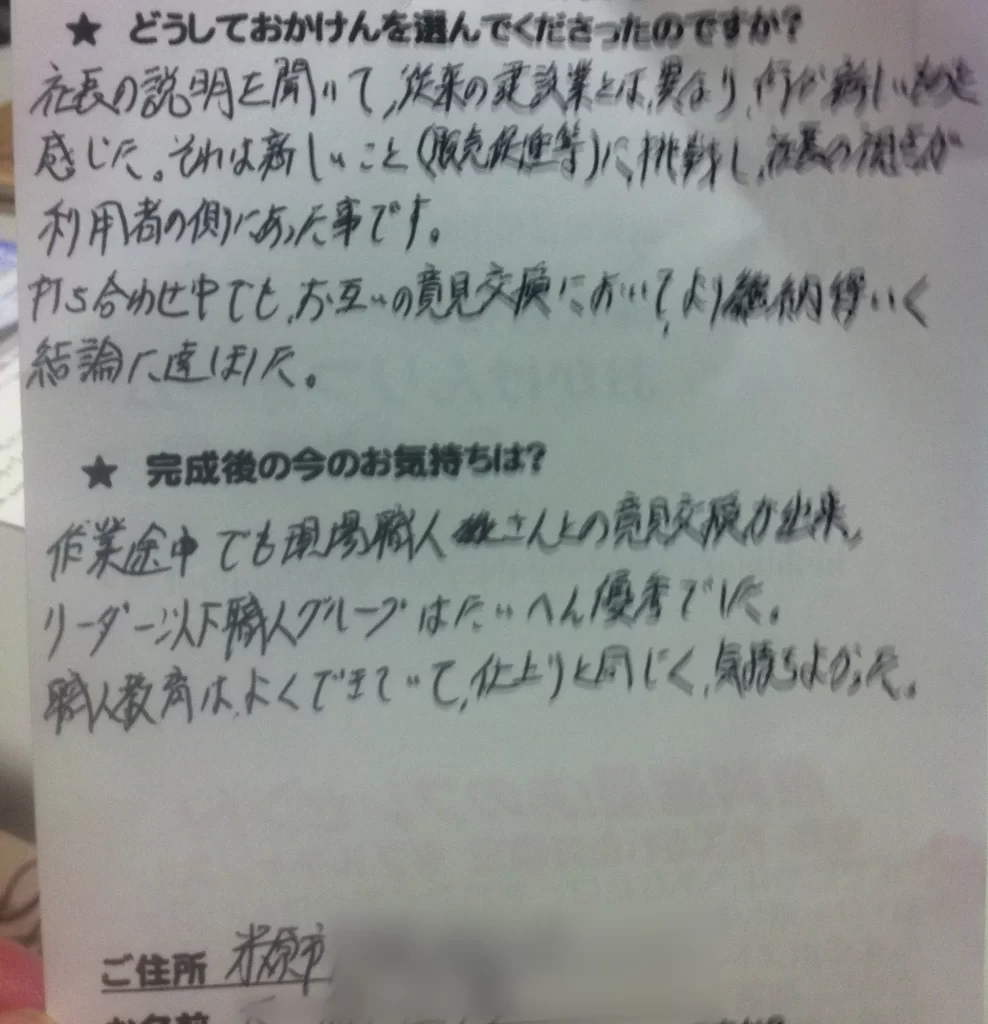 ★ どうしておかけんを選んでくださったのですか?
社長の説明を聞いて、従来の建設業とは、異なり、何か新しいものを
感じた。それは新しいこと(販売促進等)に、挑戦し、社長の視点が
利用者の側にあった事です。
打ち合わせ中でも、お互いの意見交換において、より納得いく
結論に達しました。
★ 完成後の今のお気持ちは?
作業途中でも現場職人さんとの意見交換が出来、
リーダー以下職人グループはたいへん優秀でした。
職人教育は、よくできていて、仕上りと同じく、気持ちよかった。
ご住所 米原市
お名前